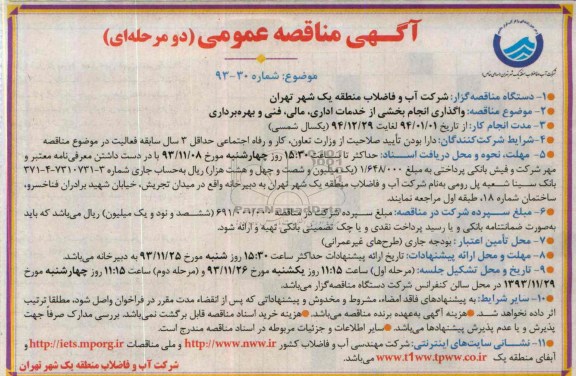 آگهی مناقصه عمومی (دو مرحله‌ای)
موضوع: شماره ۳۰-۹۳
۱- دستگاه مناقصه‌گزار: شرکت آب و فاضلاب منطقه یک شهر تهران
۲- موضوع مناقصه: واگذاری انجام بخشی از خدمات اداری، مالی، فنی و بهره‌برداری
۳- مدت انجام کار: از تاریخ ۹۴/۰۱/۰۱ لغایت ۹۴/۱۲/۲۹ (یکسال شمسی)
۴- شرایط شرکت‌کنندگان: دارا بودن تأیید صلاحیت از وزارت تعاون، کار و رفاه اجتماعی حداقل ۳ سال سابقه فعالیت در موضوع مناقصه
۵- مهلت، نحوه و محل دریافت اسناد: حداکثر تا ساعت ۱۵:۳۰ روز چهارشنبه مورخ ۹۳/۱۱/۰۸ با در دست داشتن معرفی‌نامه معتبر و
مهر شرکت و فیش بانکی پرداختی به مبلغ ۱/۶۴۸/۰۰۰ (یک میلیون و شصت و چهل و هشت هزار) ریال به‌حساب جاری شماره ۳-۷۳۱۰۷۳۱-۴-۳۷۱
بانک سینا شعبه پل رومی به‌نام شرکت آب و فاضلاب منطقه یک شهر تهران به دبیرخانه واقع در میدان تجریش، خیابان شهید برادران فناخسرو،
ساختمان شماره ۱۸، طبقه اول مراجعه نمایند.
۶- مبلغ سپرده شرکت در مناقصه: مبلغ سپرده شرکت در مناقصه (ششصد و نود و یک میلیون) ریال می‌باشد که باید
به‌صورت ضمانتنامه بانکی و یا رسید پرداخت نقدی و یا چک تضمینی بانکی تهیه و ارائه شود.
۷- محل تأمین اعتبار: بودجه جاری (طرح‌های غیرعمرانی)
۸- مهلت و محل ارائه پیشنهادات: تاریخ ارائه پیشنهادات حداکثر ساعت ۱۵:۳۰ روز شنبه مورخ ۹۳/۱۱/۲۵ به دبیرخانه می‌باشد.
۹- تاریخ و محل تشکیل جلسه: (مرحله اول) ساعت ۱۱:۱۵ روز یکشنبه مورخ ۹۳/۱۱/۲۶ و (مرحله دوم) ساعت ۱۱:۱۵ روز چهارشنبه مورخ
۱۳۹۳/۱۱/۲۹ در محل سالن کنفرانس شرکت دستگاه مناقصه‌گزار می‌باشد.
۱۰- سایر شرایط: به پیشنهادهای فاقد امضاء، مشروط و مخدوش و پیشنهاداتی که پس از انقضاء مدت مقرر در فراخوان واصل شود، مطلقا ترتیب
اثر داده نخواهد شد. هزینه آگهی به‌عهده برنده مناقصه می‌باشد. هزینه خرید اسناد مناقصه قابل برگشت نمی‌باشد. بررسی مدارک صرفاً جهت
پذیرش و یا عدم پذیرش پیشنهادها می‌باشد. سایر اطلاعات و جزئیات مربوطه در اسناد مناقصه مندرج است.
۱۱- نشانی سایت‌های اینترنتی: شرکت مهندسی آب و فاضلاب کشور http://www.nww.ir و ملی مناقصات http://iets.mporg.ir و
آبفای منطقه یک www.t1ww.tpww.co.ir می‌باشد.
شرکت آب و فاضلاب منطقه یک شهر تهران